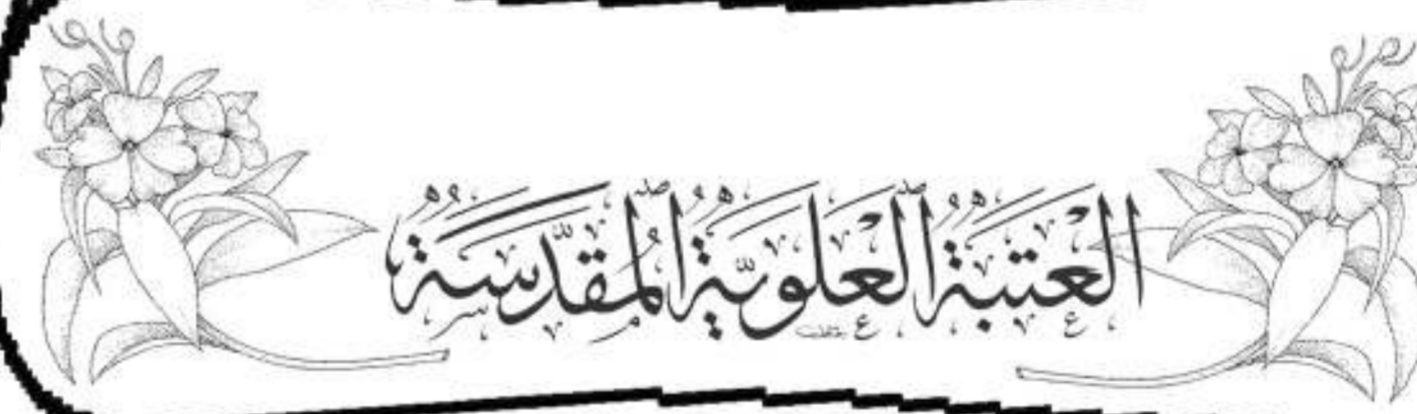 العتبة العلوية المقدسة